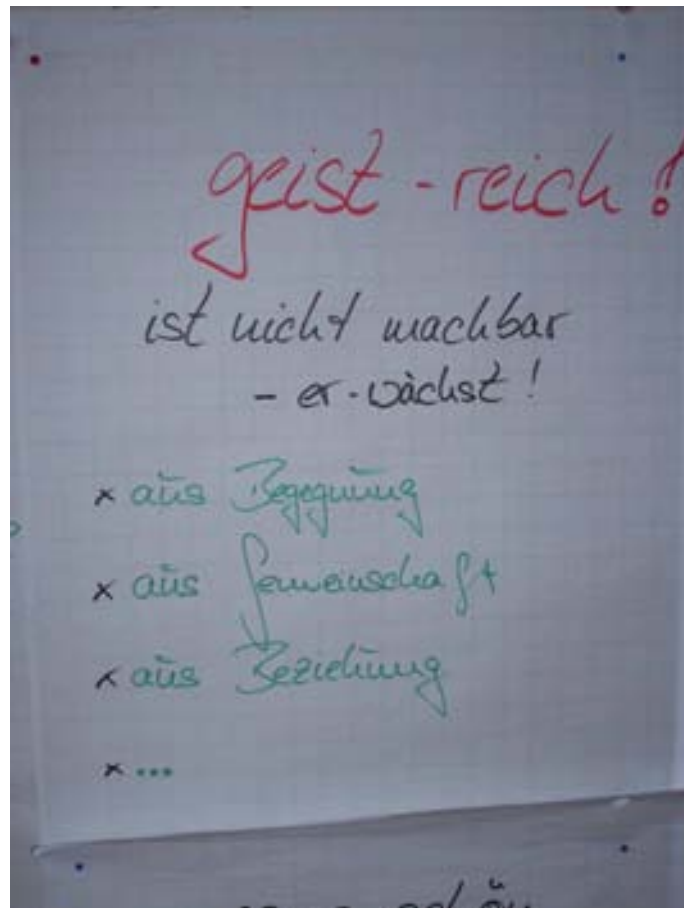 geist-reich!
ist nicht machbar
- er-wächst!
x aus Begegnung
x aus Gemeinschaft
x aus Beziehung
x ...